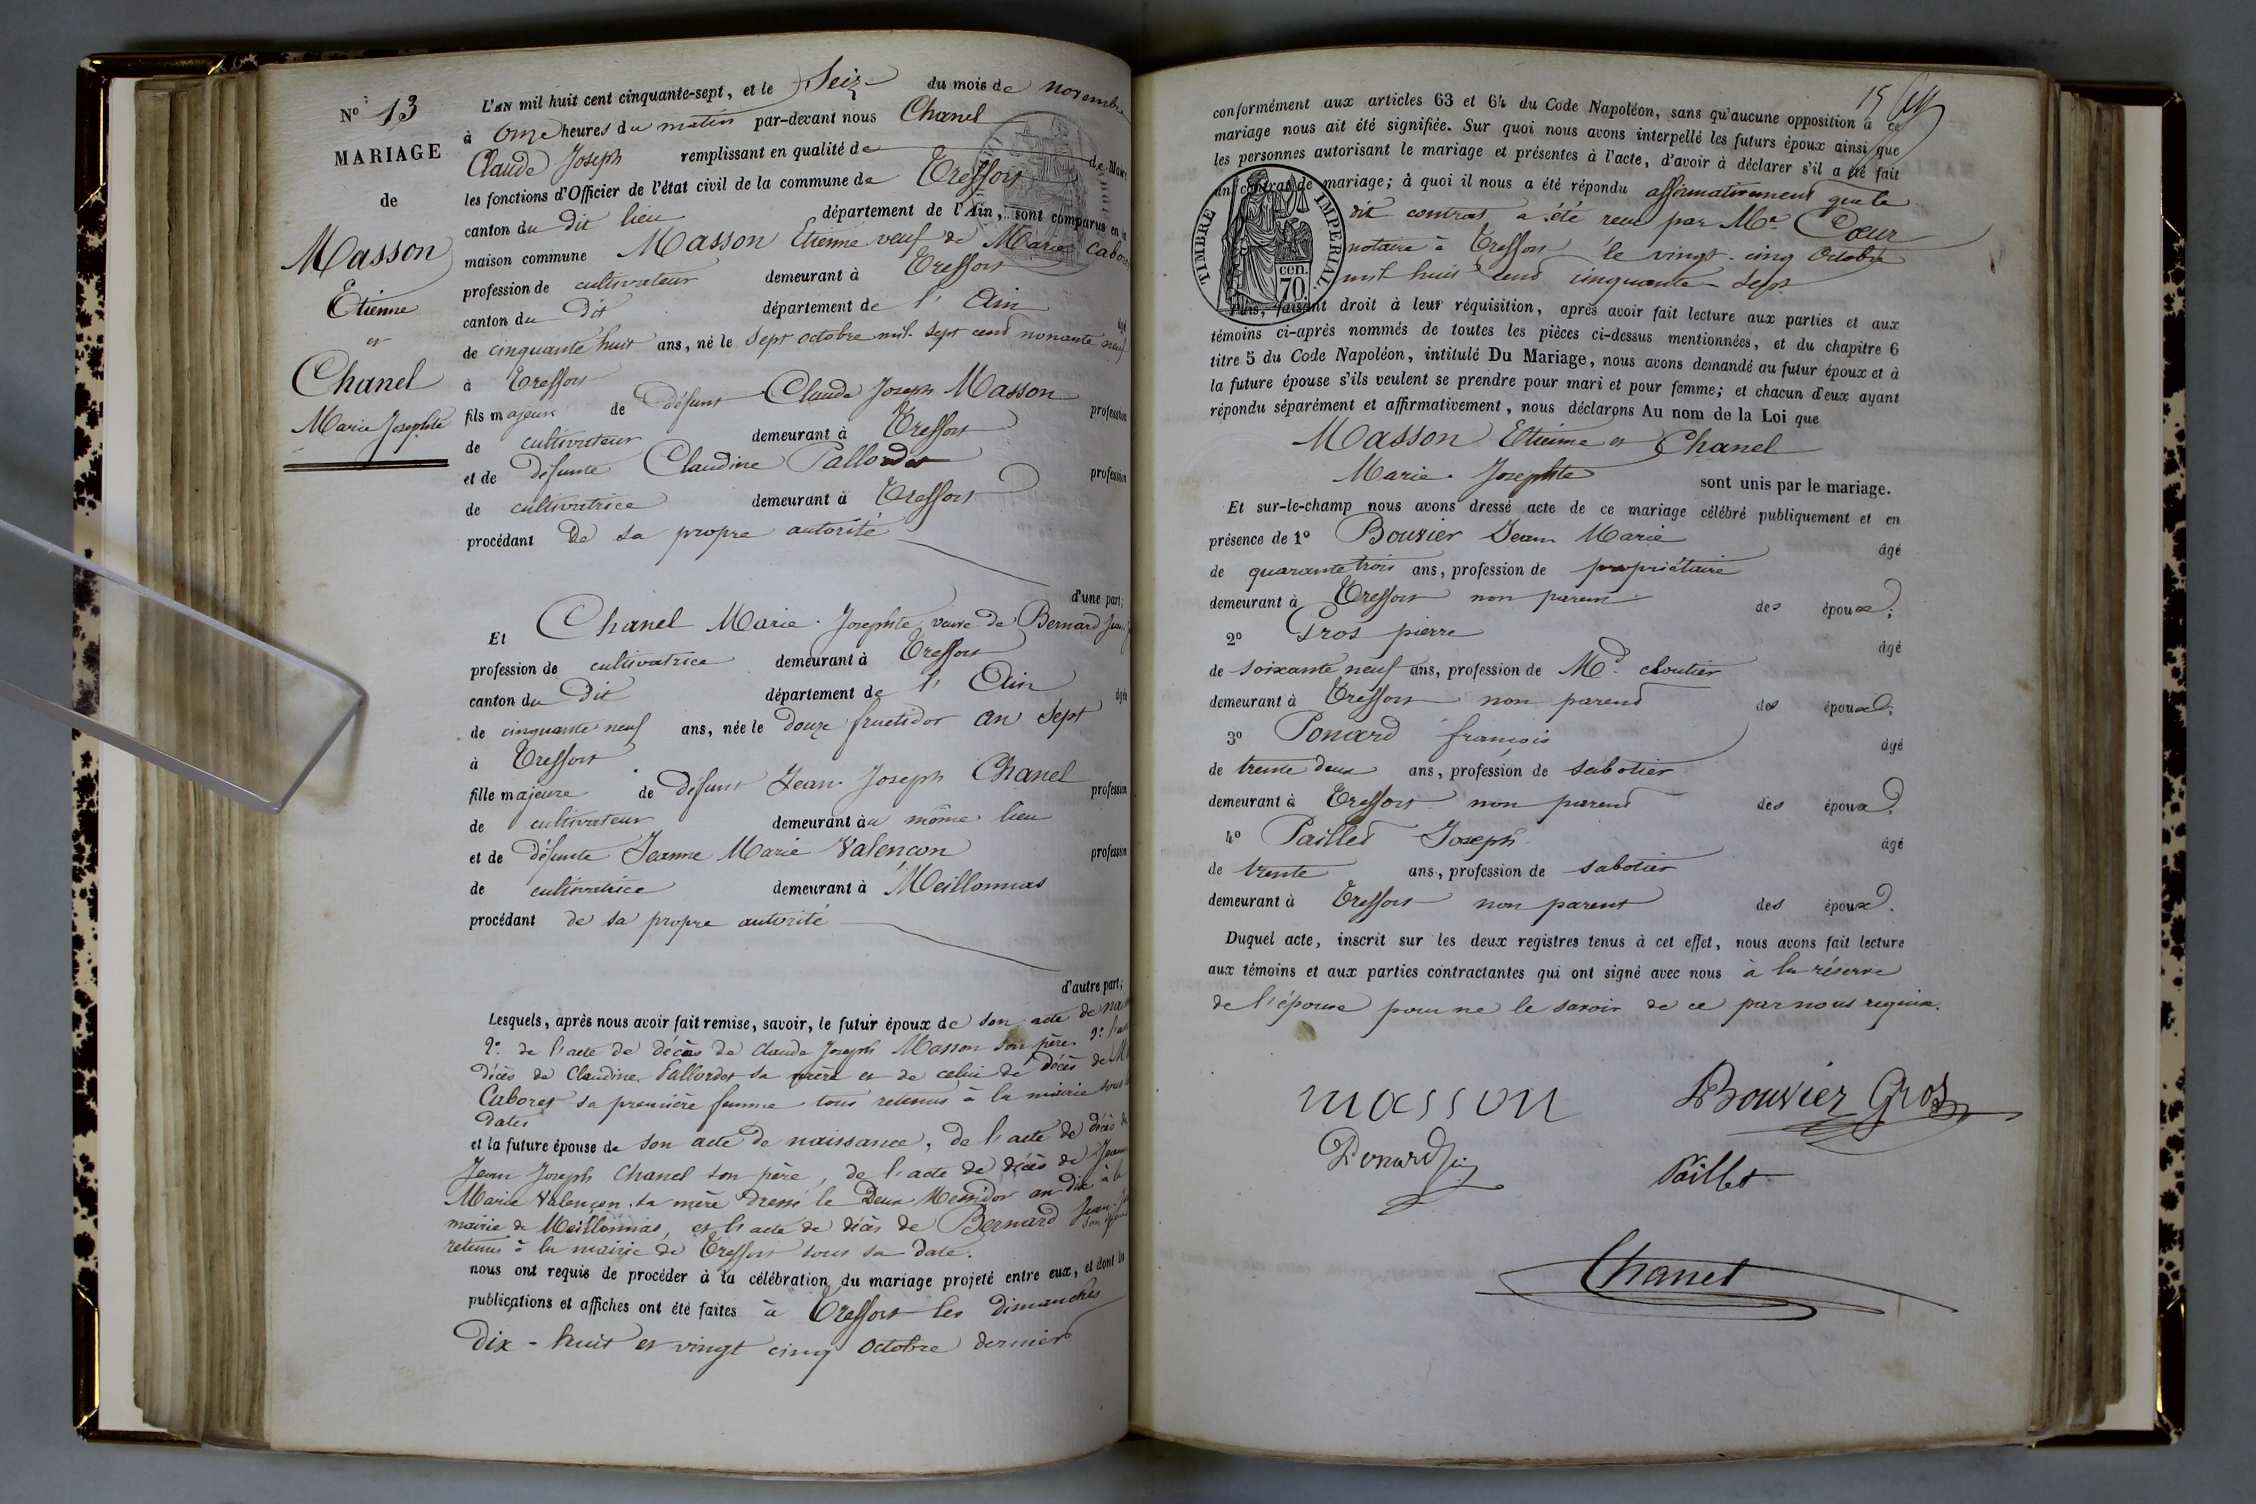 N° 13
MARIAGE
de
Masson
Etienne
et
Chanel
Marie Josephte
L'AN mil huit cent cinquante-sept, et le Seize du mois de novembre
à onze heures du matin par-devant nous Chanel
Claude Joseph remplissant en qualité de de Maire
les fonctions d'Officier de l'état civil de la commune de Treffort
canton du dit lieu département de l'Ain, sont comparus en la
maison commune Masson Etienne veuf de Marie Cabores
profession de cultivateur demeurant à Treffort
canton du dit département de l'Ain âgé
de cinquante huit ans, né le sept octobre mil sept cent nonante neuf
à Treffort
fils majeur de défunt Claude Joseph Masson profession
de cultivateur demeurant à Treffort
et de défunte Claudine Pallordet profession
de cultivatrice demeurant à Treffort
procédant de sa propre autorité
d'une part;
Et Chanel Marie Josephte veuve de Bernard Jean
profession de cultivatrice demeurant à Treffort
canton du dit département de l'Ain âgée
de cinquante neuf ans, née le douze fructidor an sept
à Treffort
fille majeure de défunt Jean Joseph Chanel profession
de cultivateur demeurant au même lieu
et de défunte Jeanne Marie Valençon profession
de cultivatrice demeurant à Meillonnas
procédant de sa propre autorité
d'autre part;
Lesquels, après nous avoir fait remise, savoir, le futur époux de son acte de
2° de l'acte de décès de Claude Joseph Masson son père 3°
décès de Claudine Pallordet sa mère et de celui de décès de
Cabores sa première femme tous retenus à la mairie sous
dates
et la future épouse de son acte de naissance, de l'acte de décès de
Jean Joseph Chanel son père, de l'acte de décès de Jeanne
Marie Valençon sa mère dressé le Deux Messidor an dix à la
mairie de Meillonnas, et l'acte de décès de Bernard Jean
son époux
retenus à la mairie de Treffort sous sa date.
nous ont requis de procéder à la célébration du mariage projeté entre eux, et dont les
publications et affiches ont été faites à Treffort les dimanches
dix-huit et vingt cinq octobre dernier
15
conformément aux articles 63 et 64 du Code Napoléon, sans qu'aucune opposition à ce
mariage nous ait été signifiée. Sur quoi nous avons interpellé les futurs époux ainsi que
les personnes autorisant le mariage et présentes à l'acte, d'avoir à déclarer s'il a été fait
un contrat de mariage; à quoi il nous a été répondu affirmativement que le
dit contrat a été reçu par Me Cœur
notaire à Treffort le vingt-cinq Octobre
mil huit cent cinquante-sept
TIMBRE IMPERIAL.
cen.
70
Puis, faisant droit à leur réquisition, après avoir fait lecture aux parties et aux
témoins ci-après nommés de toutes les pièces ci-dessus mentionnées, et du chapitre 6
titre 5 du Code Napoléon, intitulé Du Mariage, nous avons demandé au futur époux et à
la future épouse s'ils veulent se prendre pour mari et pour femme; et chacun d'eux ayant
répondu séparément et affirmativement, nous déclarons Au nom de la Loi que
Masson Etienne et Chanel
Marie Josephte sont unis par le mariage.
Et sur-le-champ nous avons dressé acte de ce mariage célébré publiquement et en
présence de 1° Bouvier Jean Marie âgé
de quarante trois ans, profession de propriétaire
demeurant à Treffort non parent des époux;
2° Gros pierre âgé
de soixante neuf ans, profession de Md. cloutier
demeurant à Treffort non parent des époux;
3° Ponard françois âgé
de trente deux ans, profession de sabotier
demeurant à Treffort non parent des époux;
4° Paillet Joseph âgé
de trente ans, profession de sabotier
demeurant à Treffort non parent des époux.
Duquel acte, inscrit sur les deux registres tenus à cet effet, nous avons fait lecture
aux témoins et aux parties contractantes qui ont signé avec nous à la réserve
de l'épouse pour ne le savoir de ce par nous requise.
masson Bouvier Gros
Ponard Paillet
Chanel